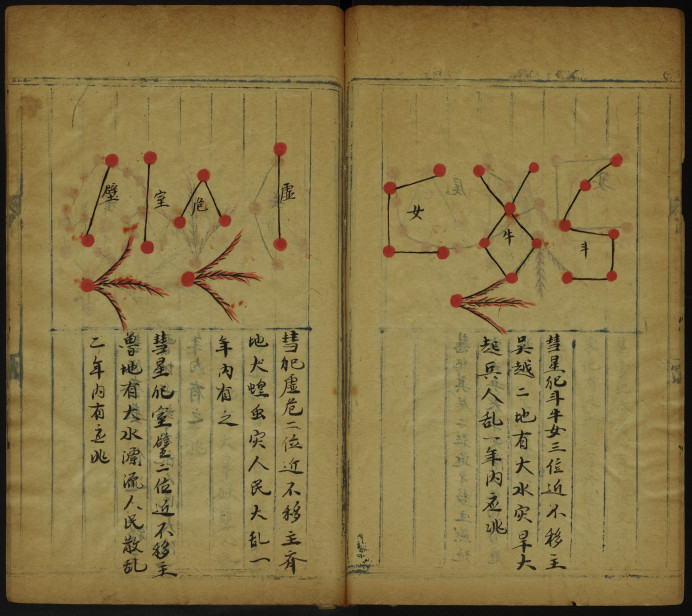 斗
牛
女
彗星犯斗牛女三位近不移主
吳越二地有大水灾旱大
起兵人乱一年內应兆
虛
危
室
壁
彗犯虛危二位近不移主齊
地犬蝗虫灾人民大乱一
年內有之
彗星犯室壁二位近不移主
魯地有大水漂流人民散乱
二年內有应兆